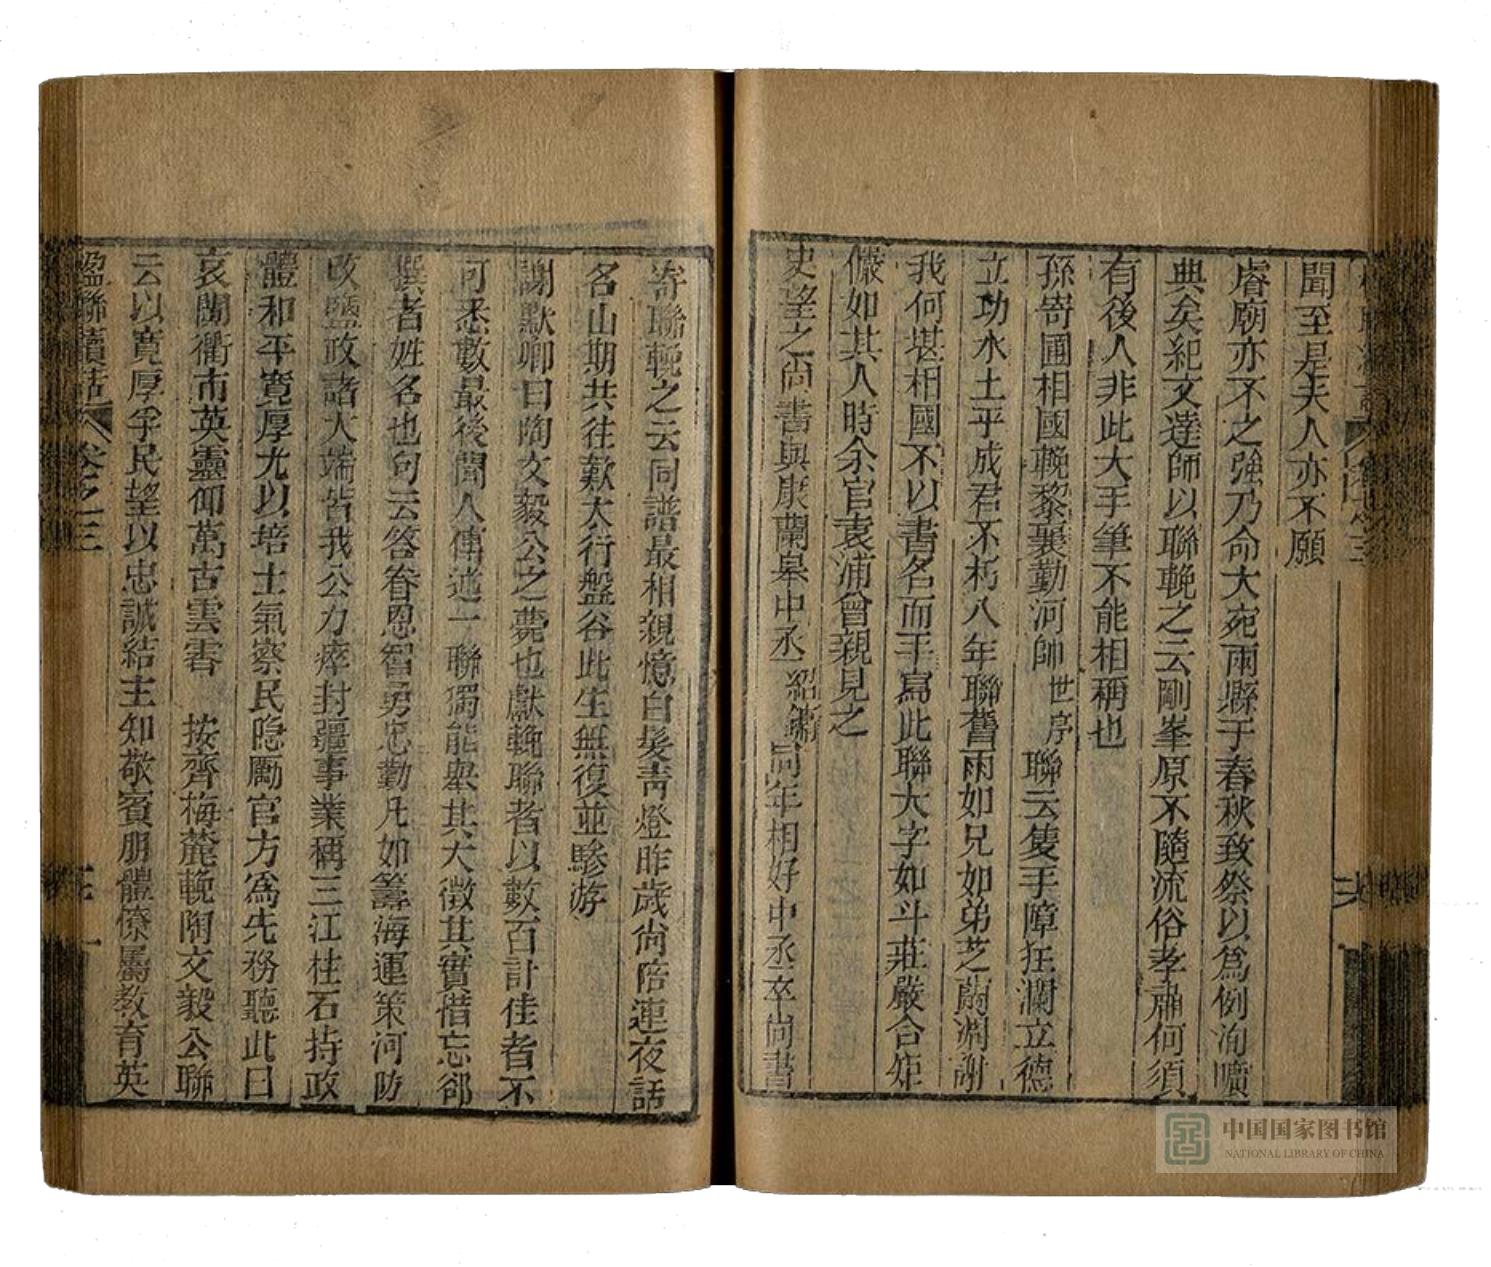 聞至是夫人亦不願
睿廟亦不之強乃命大宛兩縣于春秋致祭以為例洵曠
典矣紀文達師以聯輓之云剛峯原不隨流俗孝肅何須
有後人非此大手筆不能相稱也
孫寄圃相國輓黎襄勤河帥世序聯云隻手障狂瀾立德
立功水土平成君不朽八年聯舊雨如兄如弟芝蘭凋謝
我何堪相國不以書名而手寫此聯大字如斗莊嚴合矩
儼如其人時余官袁浦曾親見之
史望之尚書與康蘭皋中丞紹鏞同年相好中丞卒尚書
寄聯輓之云同譜最相親憶白髮青燈昨歲尚陪連夜話
名山期共往歎太行盤谷此生無復並驂游
謝默卿曰陶文毅公之薨也獻輓聯者以數百計佳者不
可悉數最後聞人傳述一聯獨能舉其大徵其實惜忘卻
撰者姓名也句云答眷恩智勇忠勤凡如籌海運策河防
改鹽政諸大端皆我公力瘁封疆事業稱三江柱石持政
體和平寬厚尤以培士氣察民隱勵官方為先務聽此日
哀闐衢市英靈仰萬古雲霄 按齊梅麓輓陶文毅公聯
云以寬厚孚民望以忠誠結主知敬賓朋體僚屬教育英
楹聯續話 卷之三
中国国家图书馆
NATIONAL LIBRARY OF CHINA